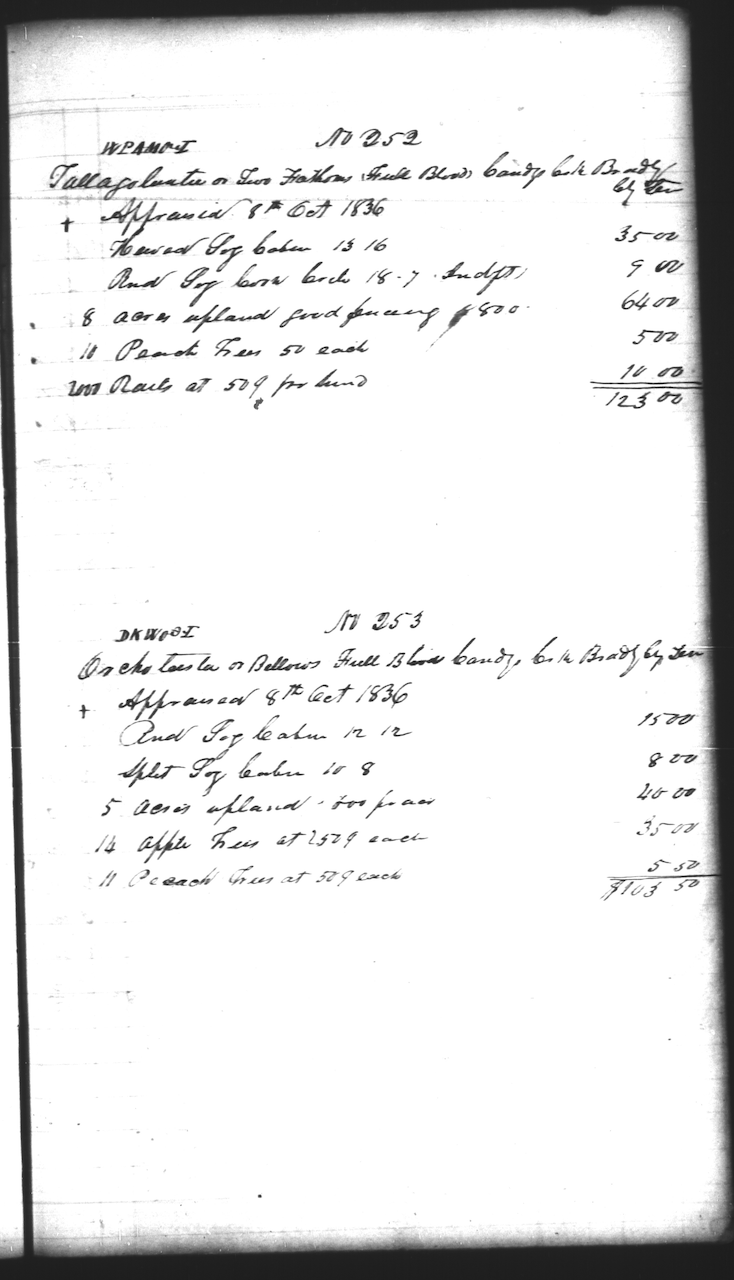 No 252
WPAMO-I
Tallagoluntee or Two Fathoms Full Blood Candys Crk Bradly
Cty Ten
+ Appraised 8th Oct 1836
Hewed Log Cabin 13 16 35 00
Rnd Log Corn Crib 18-7 9 00
8 acres upland good fencing $800 64 00
10 Peach Trees 50 each 5 00
2000 Rails at 50¢ per hund 10 00
123 00
No 253
DKWOO-I
or Bellows Full Blood Candys Crk Bradly Cty Ten
+ Appraised 8th Oct 1836
Rnd Log Cabin 12 12 15 00
Split Log Cabin 10 8 8 00
5 acres upland 800 pr acr 40 00
14 Apple Trees at 250¢ each 35 00
11 Peeach Trees at 50¢ each 5 50
$103 50